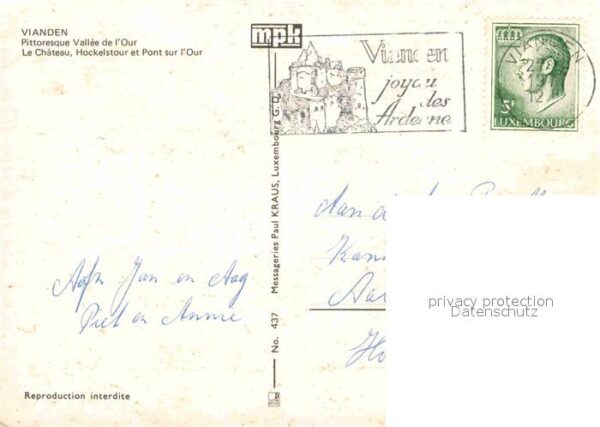 VIANDEN
Pittoresque Vallée de l'Our
Le Château, Hockelstour et Pont sur l'Our
mpk
Vianden
joyau
des
Ardenne
VIANDEN
12
5F
LUXEMBOURG
Messageries Paul KRAUS, Luxembourg G.D.
No. 437
Jan en
Piet en Annie
Aan de
privacy protection
Datenschutz
Reproduction interdite